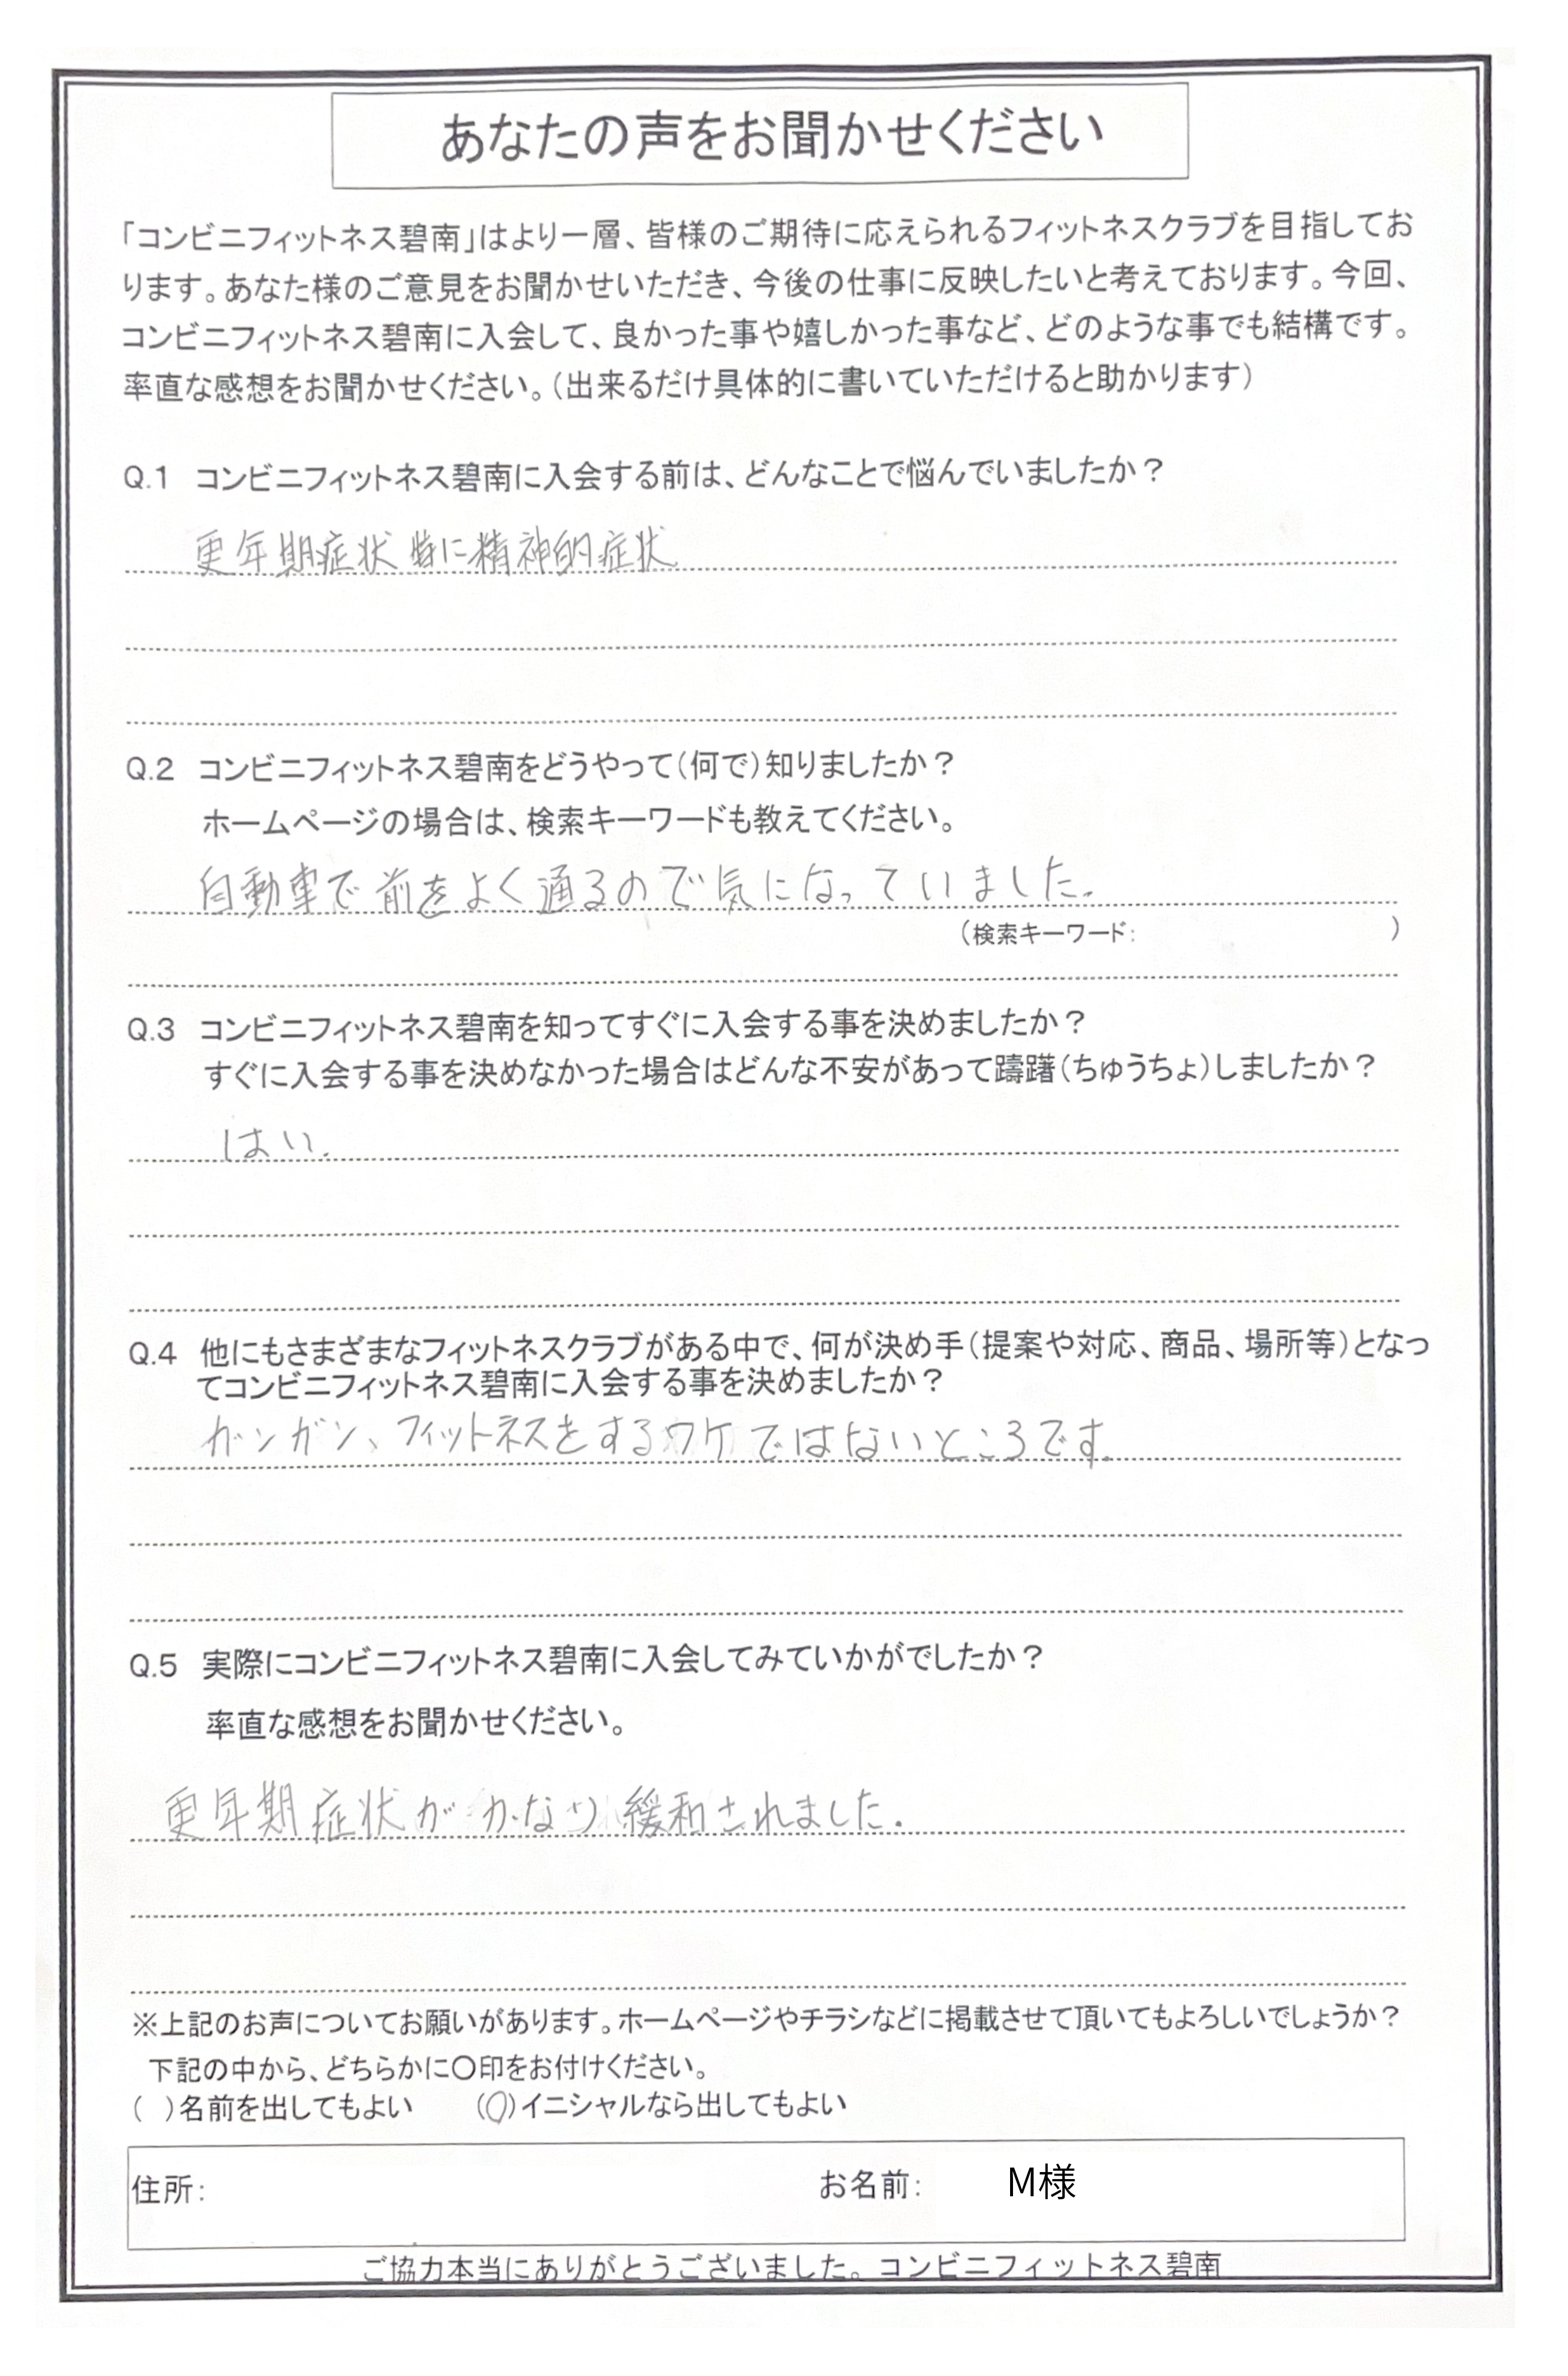 あなたの声をお聞かせください
「コンビニフィットネス碧南」はより一層、皆様のご期待に応えられるフィットネスクラブを目指してお
ります。あなた様のご意見をお聞かせいただき、今後の仕事に反映したいと考えております。今回、
コンビニフィットネス碧南に入会して、良かった事や嬉しかった事など、どのような事でも結構です。
率直な感想をお聞かせください。（出来るだけ具体的に書いていただけると助かります）
Q.1 コンビニフィットネス碧南に入会する前は、どんなことで悩んでいましたか？
更年期症状 特に精神的症状
Q.2 コンビニフィットネス碧南をどうやって（何で）知りましたか？
ホームページの場合は、検索キーワードも教えてください。
自動車で前をよく通るので気になっていました。
（検索キーワード： ）
Q.3 コンビニフィットネス碧南を知ってすぐに入会する事を決めましたか？
すぐに入会する事を決めなかった場合はどんな不安があって躊躇（ちゅうちょ）しましたか？
はい。
Q.4 他にもさまざまなフィットネスクラブがある中で、何が決め手（提案や対応、商品、場所等）となっ
てコンビニフィットネス碧南に入会する事を決めましたか？
ガンガン、フィットネスをするワケではないところです。
Q.5 実際にコンビニフィットネス碧南に入会してみていかがでしたか？
率直な感想をお聞かせください。
更年期症状がかなり緩和されました。
※上記のお声についてお願いがあります。ホームページやチラシなどに掲載させて頂いてもよろしいでしょうか？
下記の中から、どちらかに〇印をお付けください。
（ ）名前を出してもよい （〇）イニシャルなら出してもよい
住所： お名前： M様
ご協力本当にありがとうございました。コンビニフィットネス碧南